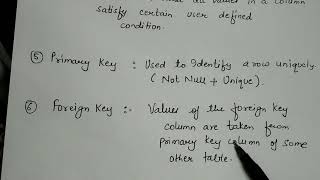 all values in a column
satisfy certain user defined
condition.
⑤ Primary Key : Used to Identify a row uniquely.
( Not Null + Unique).
⑥ Foreign Key :- Values of the foreign key
column are taken from
primary key column of some
other table.